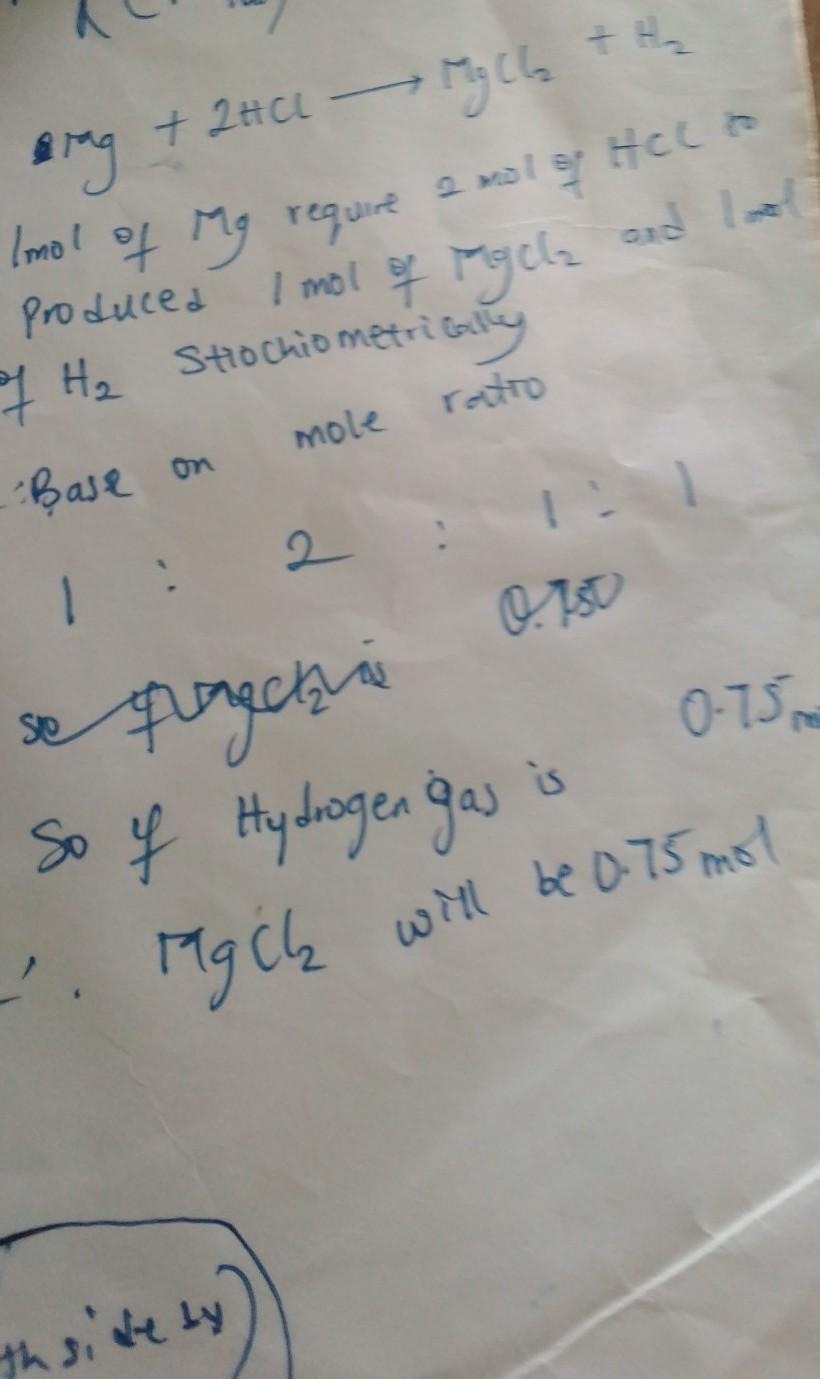 Mg + 2HCl → MgCl₂ + H₂
1mol of Mg require 2 mol of HCl to
Produced 1 mol of MgCl₂ and 1 mol
of H₂ Stiochiometrically
∴ Base on mole ratio
1 : 2 : 1 : 1
0.750
So if Hydrogen gas is 0.75
∴ MgCl₂ will be 0.75 mol
side by)